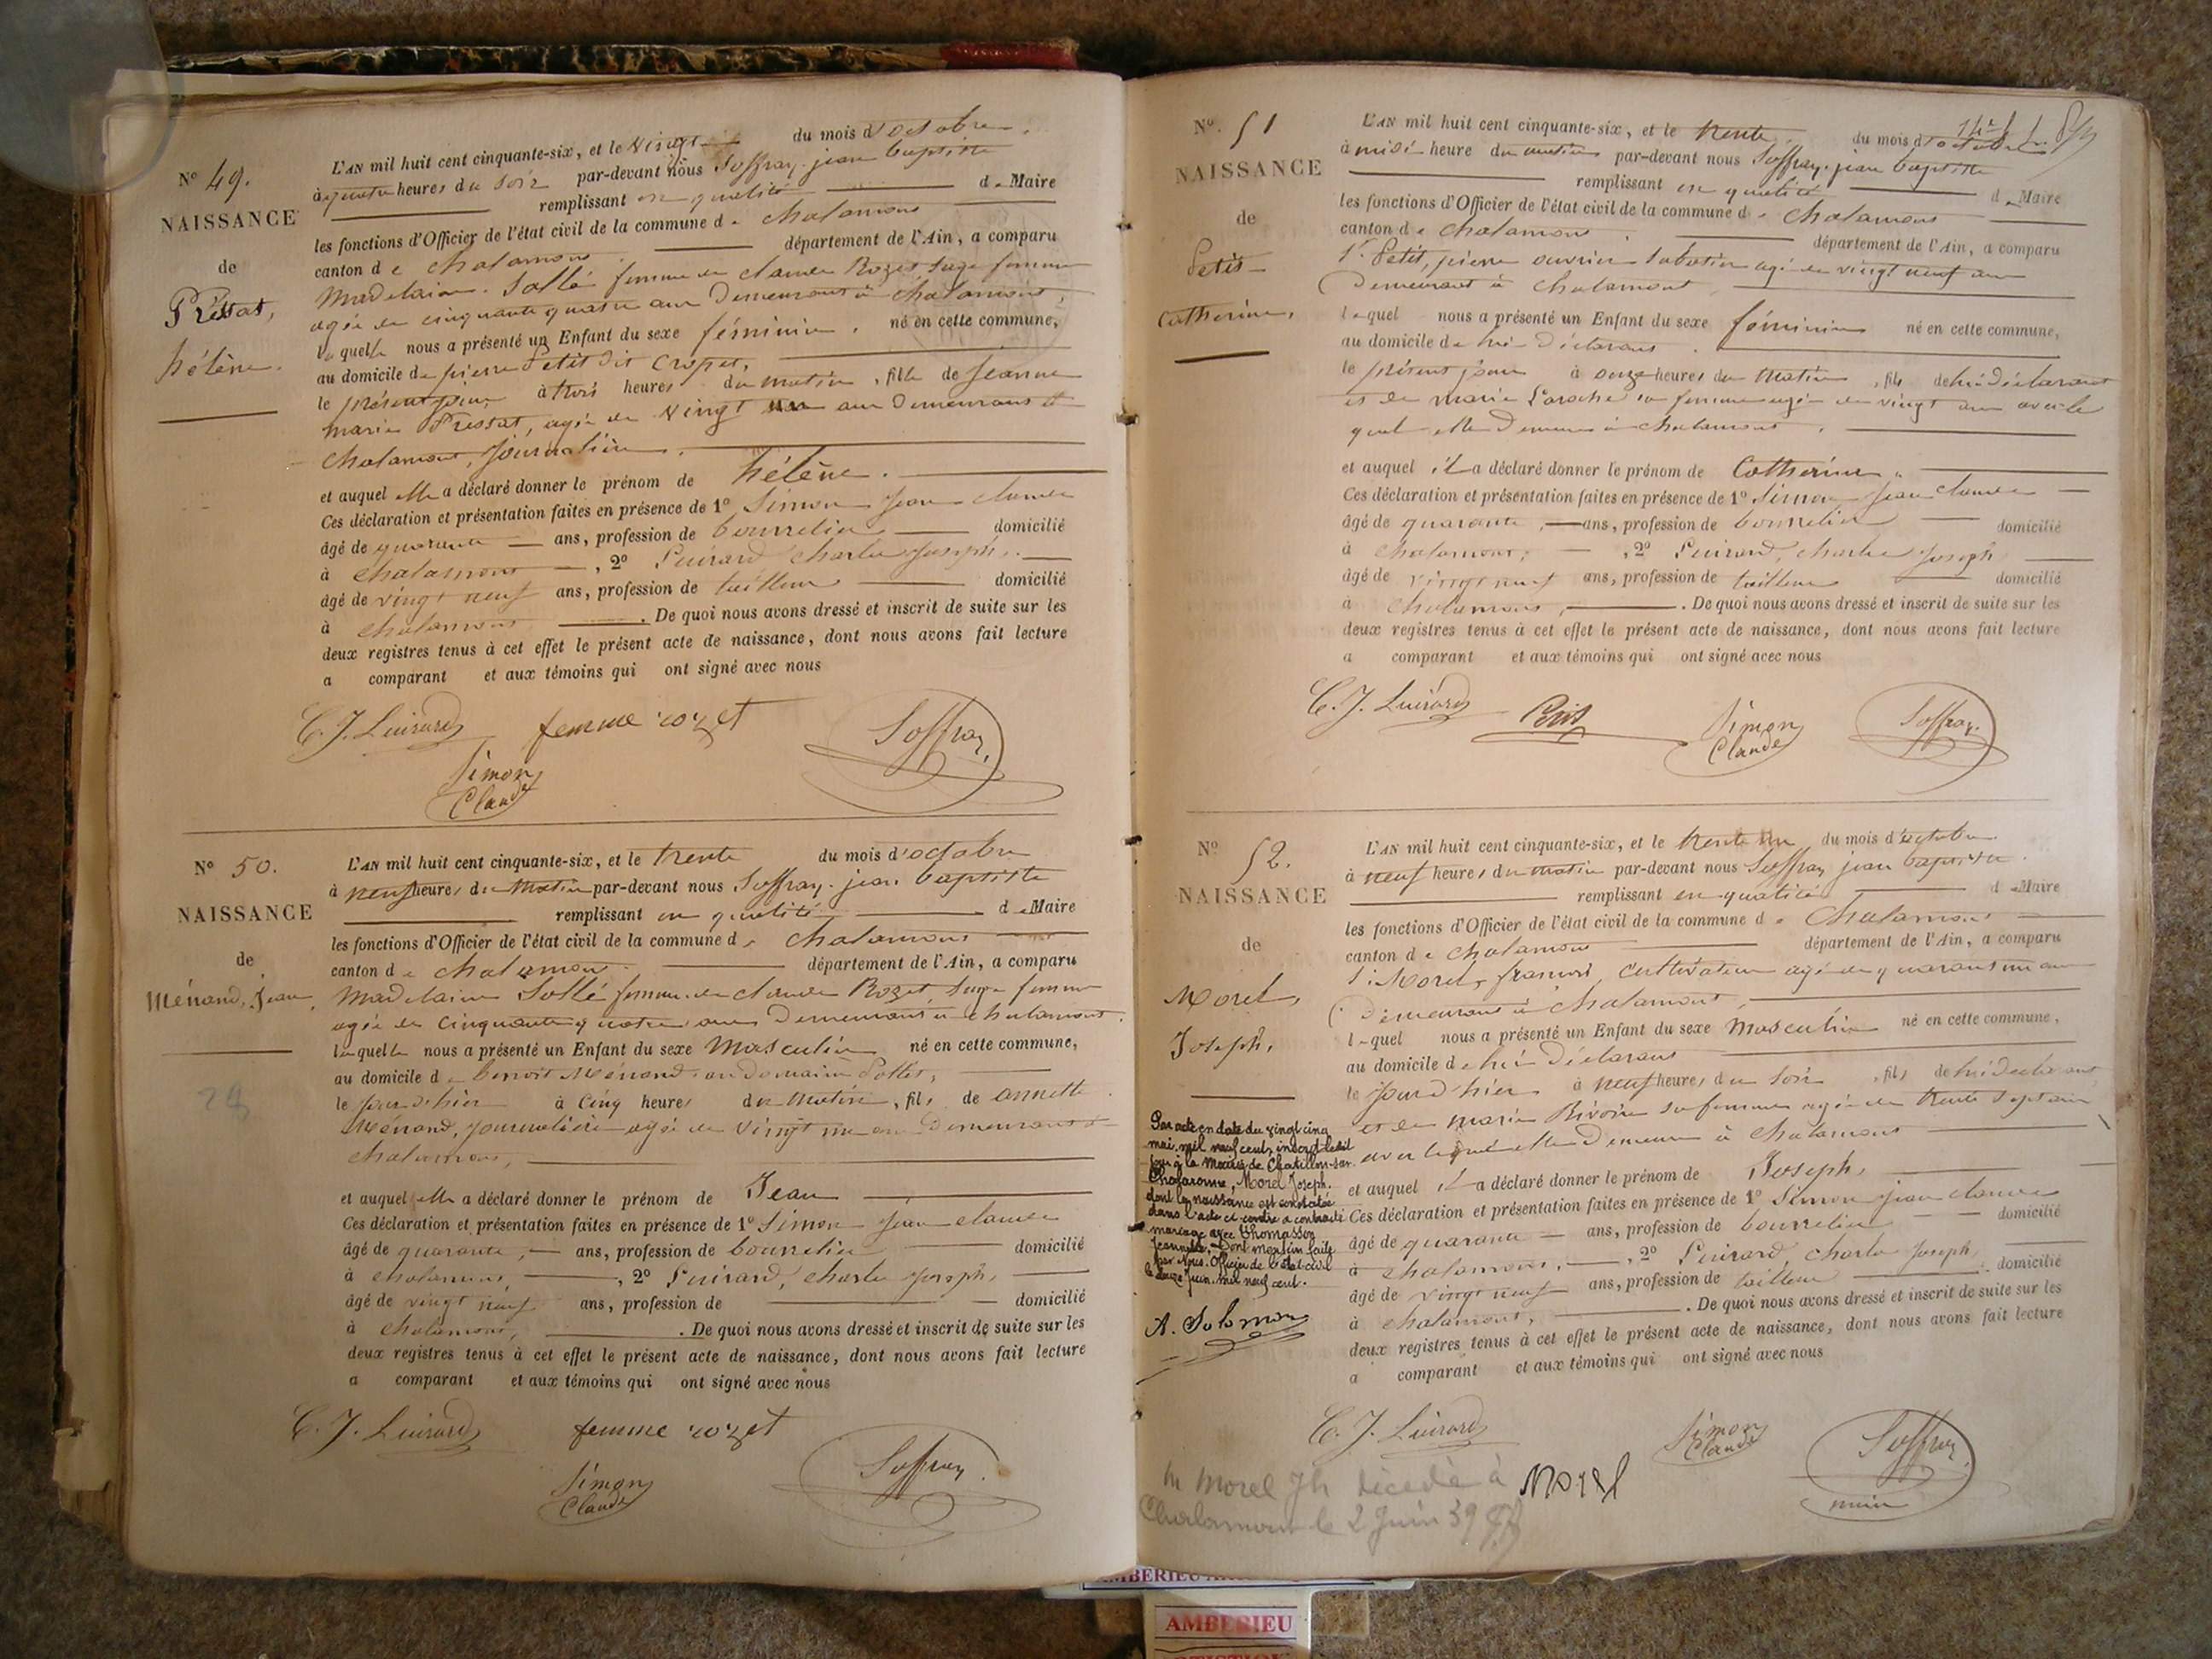 N° 49.
NAISSANCE
de
Préssat,
hélène.
L'AN mil huit cent cinquante-six, et le vingt du mois d'octobre,
à quatre heures du soir par-devant nous Soffray jean baptiste
remplissant en qualité de Maire
les fonctions d'Officier de l'état civil de la commune de chalamont
canton de chalamont département de l'Ain, a comparu
Madelaine Sollé femme de claude Rozet sage femme
agée de cinquante quatre ans Demeurant à chalamont,
laquelle nous a présenté un Enfant du sexe féminin, né en cette commune,
au domicile de pierre Petit dit Cropet,
le présent jour à trois heures du matin, fille de Jeanne
marie Pressat, agée de vingt un ans Demeurant à
chalamont, journalière.
et auquel elle a déclaré donner le prénom de hélène.
Ces déclaration et présentation faites en présence de 1° Simon Jean claude
âgé de quarante ans, profession de bourrelier domicilié
à chalamont, 2° Luirard Charles Joseph.
âgé de vingt neuf ans, profession de tailleur domicilié
à chalamont. De quoi nous avons dressé et inscrit de suite sur les
deux registres tenus à cet effet le présent acte de naissance, dont nous avons fait lecture
a comparant et aux témoins qui ont signé avec nous
C. J. Luirard femme rozet Soffray
Simon
Claude
N° 50.
NAISSANCE
de
Ménand, Jean,
L'AN mil huit cent cinquante-six, et le trente du mois d'octobre
à neuf heures du matin par-devant nous Soffray jean baptiste
remplissant en qualité de Maire
les fonctions d'Officier de l'état civil de la commune de chalamont
canton de chalamont. département de l'Ain, a comparu
Madelaine Sollé femme de claude Rozet sage femme
agée de cinquante quatre ans Demeurant à chalamont.
laquelle nous a présenté un Enfant du sexe Masculin né en cette commune,
au domicile de benoit Ménand au Domaine
le jour d'hier à cinq heures du matin, fils de annette
Ménand, journalière agée de vingt un ans Demeurant à
chalamont,
et auquel elle a déclaré donner le prénom de Jean
Ces déclaration et présentation faites en présence de 1° Simon Jean claude
âgé de quarante, ans, profession de bourrelier domicilié
à chalamont, 2° Luirard, Charles Joseph,
âgé de vingt neuf ans, profession de domicilié
à chalamont, . De quoi nous avons dressé et inscrit de suite sur les
deux registres tenus à cet effet le présent acte de naissance, dont nous avons fait lecture
a comparant et aux témoins qui ont signé avec nous
C. J. Luirard femme rozet Soffray
Simon
Claude
N° 51
NAISSANCE
de
Petit
Catherine,
L'AN mil huit cent cinquante-six, et le trente du mois d'octobre
à midi heure du matin par-devant nous Soffray jean baptiste
remplissant en qualité de Maire
les fonctions d'Officier de l'état civil de la commune de Chalamont
canton de Chalamont. département de l'Ain, a comparu
Petit, pierre ouvrier sabotier agé de vingt neuf ans
Demeurant à Chalamont
lequel nous a présenté un Enfant du sexe féminin né en cette commune,
au domicile de lui Déclarant.
le présent jour à onze heures du matin, fils de lui déclarant
et de marie Laroche sa femme agée de vingt ans avec le
quel elle Demeure à chalamont.
et auquel il a déclaré donner le prénom de Catherine.
Ces déclaration et présentation faites en présence de 1° Simon Jean claude
âgé de quarante, ans, profession de bourrelier domicilié
à chalamont, 2° Luirard, Charles Joseph
âgé de vingt neuf ans, profession de tailleur domicilié
à chalamont, . De quoi nous avons dressé et inscrit de suite sur les
deux registres tenus à cet effet le présent acte de naissance, dont nous avons fait lecture
a comparant et aux témoins qui ont signé avec nous
C. J. Luirard Petit Simon Soffray
Claude
N° 52.
NAISSANCE
de
Morel,
Joseph,
L'AN mil huit cent cinquante-six, et le trente un du mois d'octobre
à neuf heures du matin par-devant nous Soffray jean baptiste
remplissant en qualité de Maire
les fonctions d'Officier de l'état civil de la commune de Chalamont
canton de chalamont département de l'Ain, a comparu
Morel, françois, cultivateur agé de quarante un ans
Demeurant à chalamont,
lequel nous a présenté un Enfant du sexe Masculin né en cette commune,
au domicile de lui Déclarant
le jour d'hier à neuf heures du soir, fils de lui déclarant
et de marie Rivoire sa femme agée de trente sept ans
avec lequel elle Demeure à Chalamont
et auquel il a déclaré donner le prénom de Joseph,
Ces déclaration et présentation faites en présence de 1° Simon jean claude
âgé de quarante ans, profession de bourrelier domicilié
à chalamont, 2° Luirard Charles Joseph, domicilié
âgé de vingt neuf ans, profession de tailleur
à chalamont, . De quoi nous avons dressé et inscrit de suite sur les
deux registres tenus à cet effet le présent acte de naissance, dont nous avons fait lecture
a comparant et aux témoins qui ont signé avec nous
Par acte en date du vingt cinq
mai mil neuf cent, inscrit ledit
jour à la Mairie de Chatillon-sur-
Chalaronne, Morel Joseph,
dont la naissance est constatée
dans l'acte ci contre a contracté
mariage avec Thomasson
Jeannette. Dont mention faite
par Nous Officier de l'état civil
le douze Juin mil neuf cent.
A. Salomon
C. J. Luirard Simon Soffray
Claude
Morel maire
M Morel Jh décédé à
Chalamont le 2 Juin 39
AMBERIEU